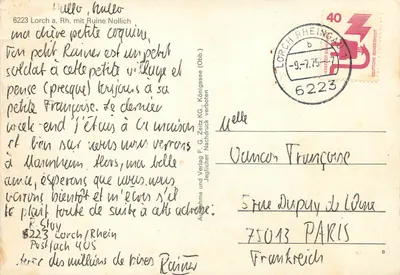 Hallo, hallo
6223 Lorch a. Rh. mit Ruine Nollich
ma chère petite coquine,
Ton petit Rainer est un petit
soldat à cette petite village et
pense (presque) toujours à sa
petite Française. Le dernier
week-end j'étais à la maison
et bien sur nous nous verrons
à Mannheim. Alors, ma belle
amie, espérons que nous nous
verrons bientôt et m'écris s'il
te plait toute de suite à cette adresse:
R. Stoy
6223 Lorch/Rhein
Postfach 405
avec des millions de bises Rainer
Aufnahme und Verlag F. G. Zeitz KG., Königsee (Obb.)
Jeglicher Nachdruck verboten
LORCH, RHEINGAU
b
-9.-7.75
6223
40
DEUTSCHE BUNDESPOST
Melle
Françoise
5 rue Dupuy de Lôme
75013 PARIS
Frankreich